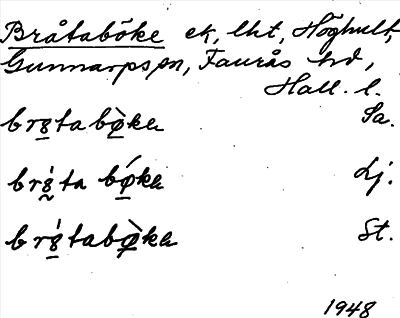 Bråtaböke ek, lht, Höghult,
Gunnarps sn, Faurås hd,
Hall. l.
brꝏ̲tabø̲̀kɐ Sa.
br8́ta bǿ̲kɐ Lj.
br8̲́tabø̲̀kɐ St.
1948